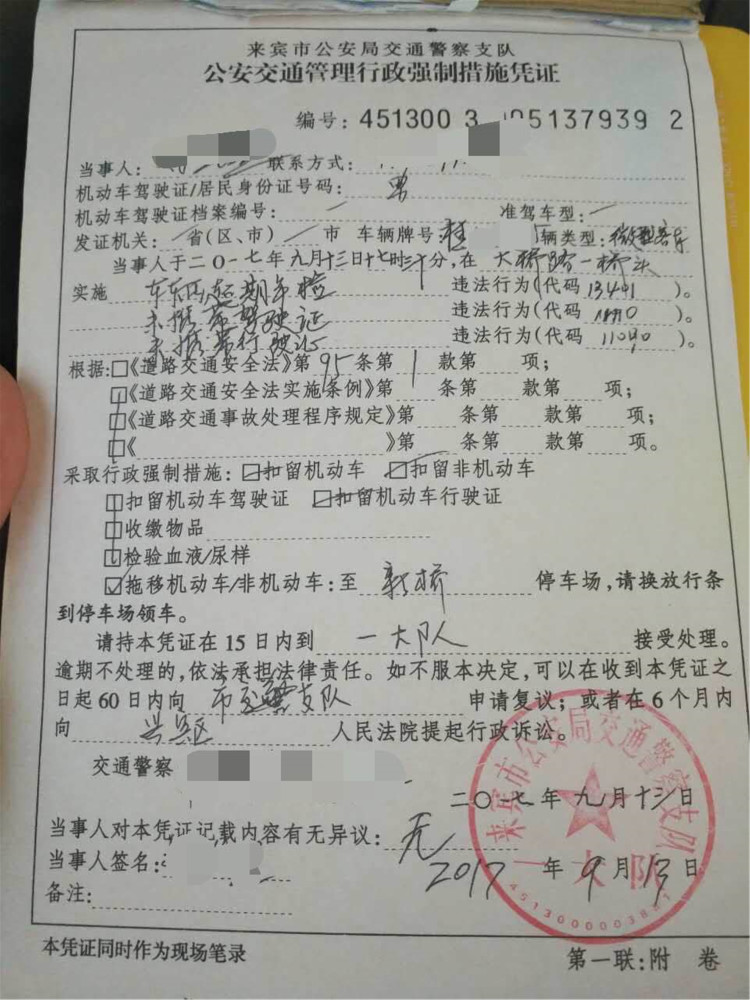 来宾市公安局交通警察支队
公安交通管理行政强制措施凭证
编号: 451300 3 05137939 2
当事人: 联系方式:
机动车驾驶证/居民身份证号码: 男
机动车驾驶证档案编号: 一 准驾车型: 一
发证机关: 一 省(区、市) 一 市 车辆牌号 桂 辆类型: 微型客车
当事人于二〇一七年九月十三日十七时三十分,在 大桥路一桥头
实施 超期年检 违法行为(代码 13441 )。
未携带驾驶证 违法行为(代码 )。
未携带行驶证 违法行为(代码 11040 )。
根据:□《道路交通安全法》第 95 条第 1 款第 项;
□《道路交通安全法实施条例》第 条第 款第 项;
□《道路交通事故处理程序规定》第 条第 款第 项;
□《 》第 条第 款第 项。
采取行政强制措施:□扣留机动车 ☑扣留非机动车
□扣留机动车驾驶证 □扣留机动车行驶证
□收缴物品
□检验血液/尿样
☑拖移机动车/非机动车:至 新桥 停车场,请换放行条
到停车场领车。
请持本凭证在15日内到 一大队 接受处理。
逾期不处理的,依法承担法律责任。如不服本决定,可以在收到本凭证之
日起60日内向 市交警支队 申请复议;或者在6个月内
向 兴宾区 人民法院提起行政诉讼。
交通警察
二〇一七年九月十三日
当事人对本凭证记载内容有无异议: 无
当事人签名:
2017 年 9 月 13 日
备注:
来宾市公安局交通警察支队
一大队
本凭证同时作为现场笔录
第一联:附 卷